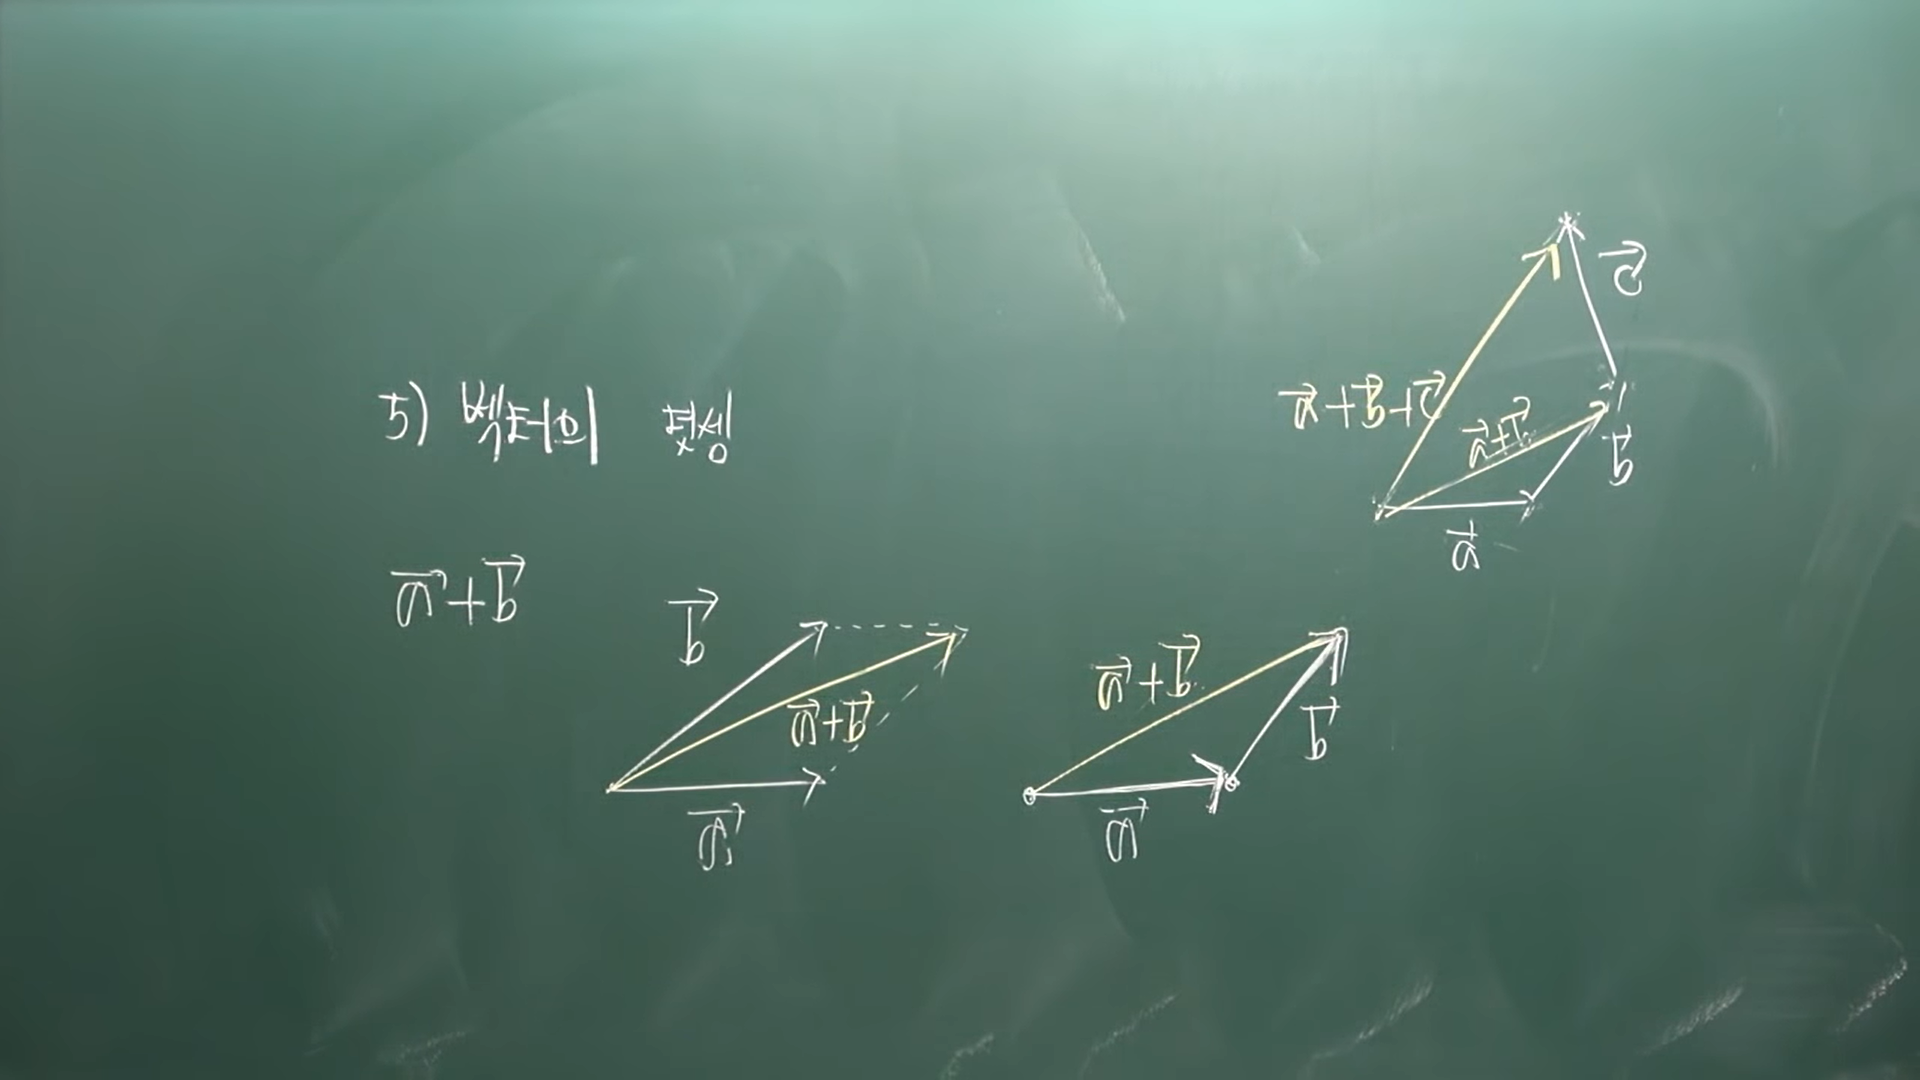 5) 벡터의 덧셈
$\vec{a}+\vec{b}$
$\vec{b}$
$\vec{a}+\vec{b}$
$\vec{a}$
$\vec{a}+\vec{b}$
$\vec{b}$
$\vec{a}$
$\vec{c}$
$\vec{a}+\vec{b}+\vec{c}$
$\vec{a}+\vec{b}$
$\vec{b}$
$\vec{a}$